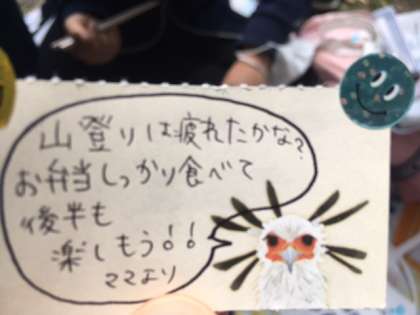 山登りは疲れたかな?
お弁当しっかり食べて
後半も
楽しもう!!
ママより